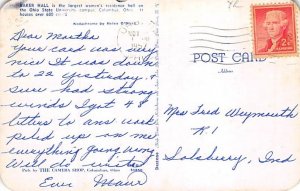 BAKER HALL is the largest women's residence hall on
the Ohio State University campus, Columbus, Ohio.
houses over 600
Dear Martha
Your card was very
nice It was down
to 22 yesterday &
sure had strong
winds I got 4
letters to ans work
piled up on me
everything going wrong
Will do write
Ever
Pub. by THE CAMERA SHOP, Columbus, Ohio
POST CARD
Address
2¢
Mrs Fred Weymouth
R 1
Solsberry, Ind